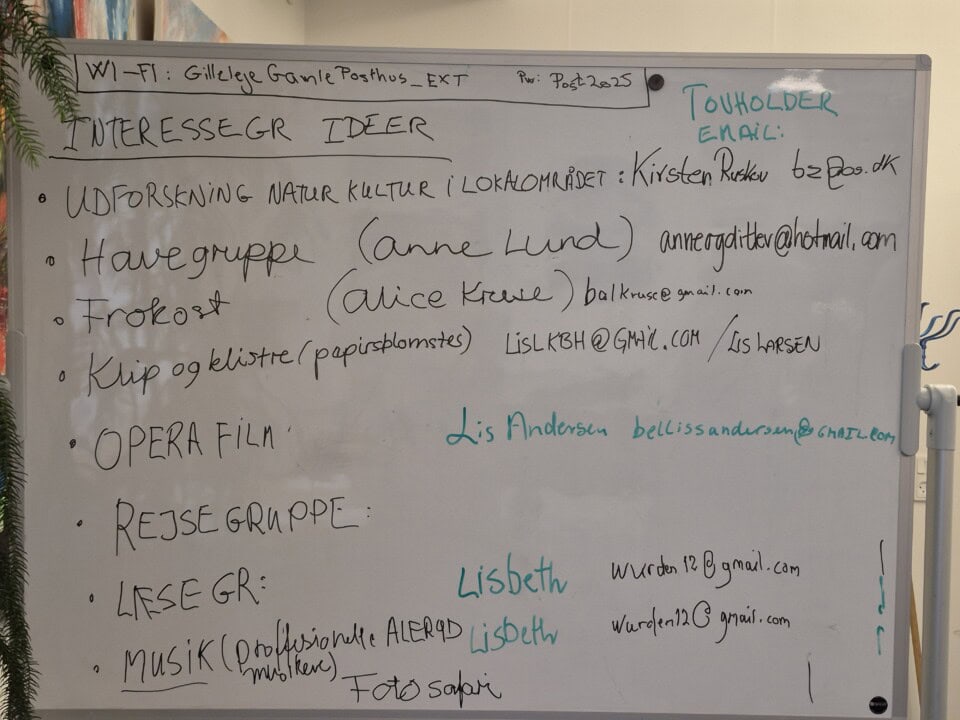 WI-FI: Gilleleje Gamle Posthus_EXT PW: Post2025
TOVHOLDER
EMAIL:
INTERESSEGR IDEER
• UDFORSKNING NATUR KULTUR i LOKALOMRÅDET : Kirsten
• Havegruppe (anne Lund) anneogditlev@hotmail.com
• Frokost (alice Kruse) balkruse@gmail.com
• Klip og klistre (papirsblomstes) LISLKBH@GMAIL.COM / LIS LARSEN
• OPERA FILM Lis Andersen bellissandersen@GMAIL.COM
• REJSEGRUPPE:
• LÆSEGR: Lisbeth wurden12@gmail.com
• MUSIK (proffesionelle ALERØD Lisbeth wurden12@gmail.com
musikere)
Foto safari